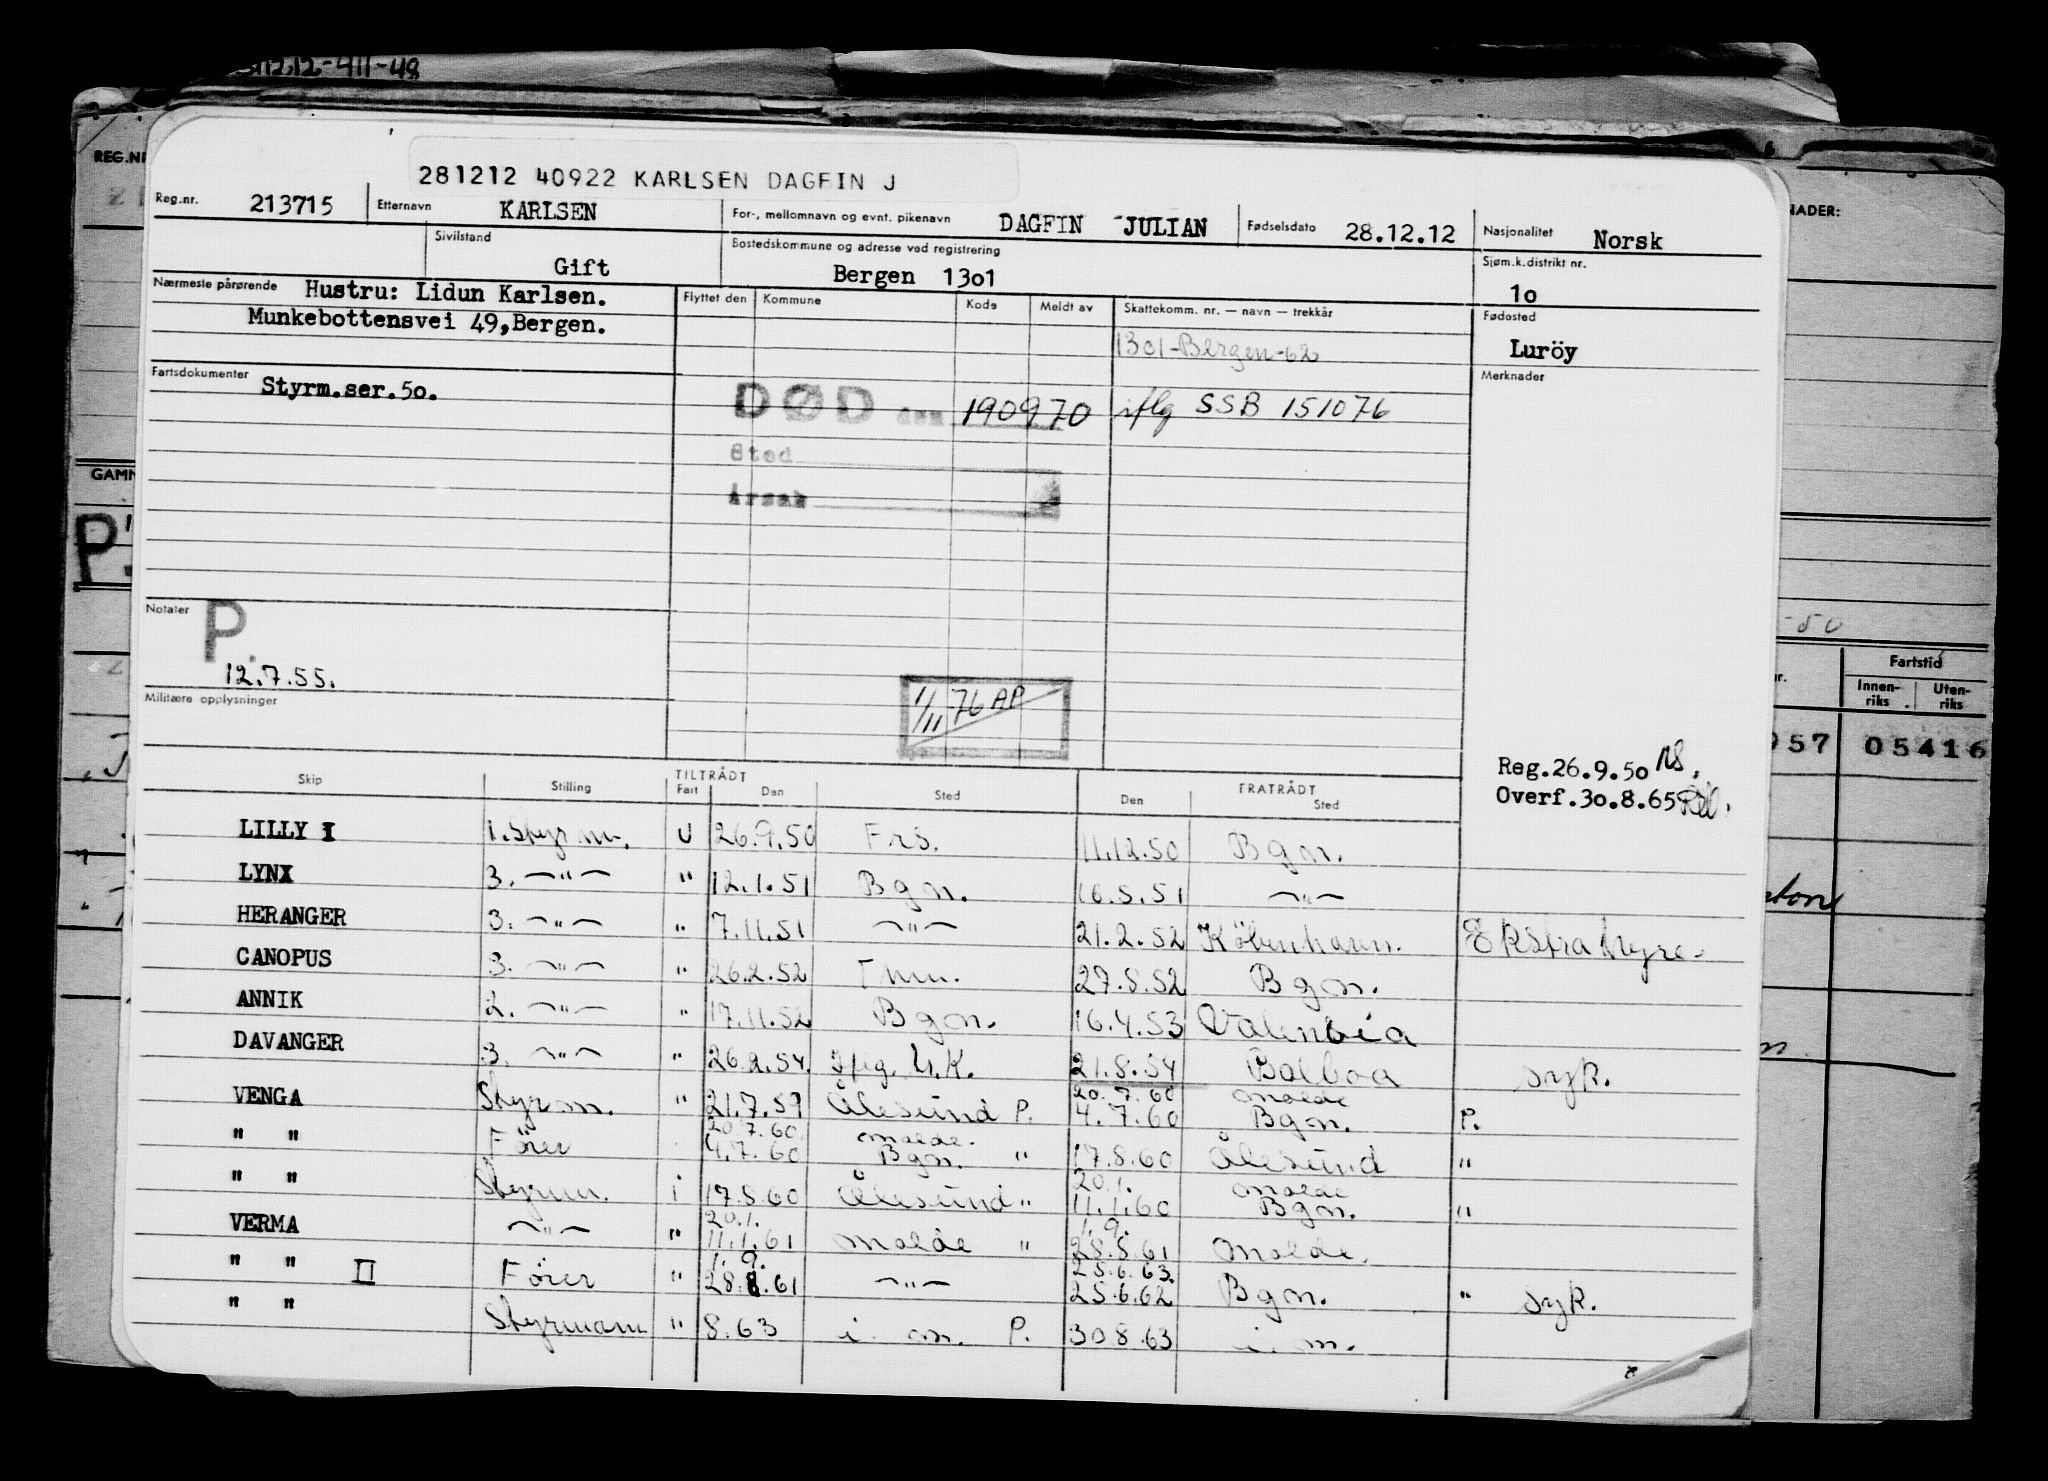 1212-911-48
REG.NR
NADER:
281212 40922 KARLSEN DAGFIN J
Reg.nr. 213715 Etternavn KARLSEN For-, mellomnavn og evnt. pikenavn DAGFIN JULIAN Fødselsdato 28.12.12 Nasjonalitet Norsk
Sivilstand Gift Bostedskommune og adresse ved registrering Bergen 13o1 Sjøm.k.distrikt nr. 1o
Nærmeste pårørende Hustru: Lidun Karlsen. Flyttet den Kommune Kode Meldt av Skattekomm. nr. — navn — trekkår Fødested
Munkebottensvei 49,Bergen. 1301-Bergen-62 Luröy
Fartsdokumenter Styrm.ser.5o. Merknader
DØD den 190970 iflg SSB 151076
Sted
Årsak
GAMM
P
Notater P.
12.7.55.
-50
Militære opplysninger
1/11 76 AP
Fartstid
Innen-riks Uten-riks
057 05416
Reg.26.9.5o
Overf.3o.8.65
Skip Stilling TILTRÅDT Fart Den Sted FRATRÅDT Den Sted
LILLY I 1. Styrm. U 26.9.50 Frs. 11.12.50 Bgn.
LYNX 3. —"— " 12.1.51 Bgn. 16.5.51 —"—
HERANGER 3. —"— " 7.11.51 —"— 21.2.52 København. Ekstra
CANOPUS 3. —"— " 26.2.52 27.8.52 Bgn.
ANNIK 2. —"— " 17.11.52 Bgn. 16.4.53 Valencia
DAVANGER 3. —"— " 26.2.54. U.K. 21.8.54 Balboa syk.
20.7.60 Molde
VENGA Styrm. " 21.7.59 Ålesund P. 4.7.60 Bgn. P.
20.7.60 Molde.
" " Förer 4.7.60 Bgn. " 17.8.60 Ålesund "
20.1. Molde
" " Styrm. i 17.8.60 Ålesund " 11.1.60 Bgn. "
20.1. 1.9.
VERMA —"— " 11.1.61 Molde " 28.8.61 Molde.
1.9. 25.6.63.
" " II Förer " 28.8.61 —"— 25.6.62 Bgn. " syk.
" " Styrmann " 8.63 i. m. P. 30 8.63 i. m.